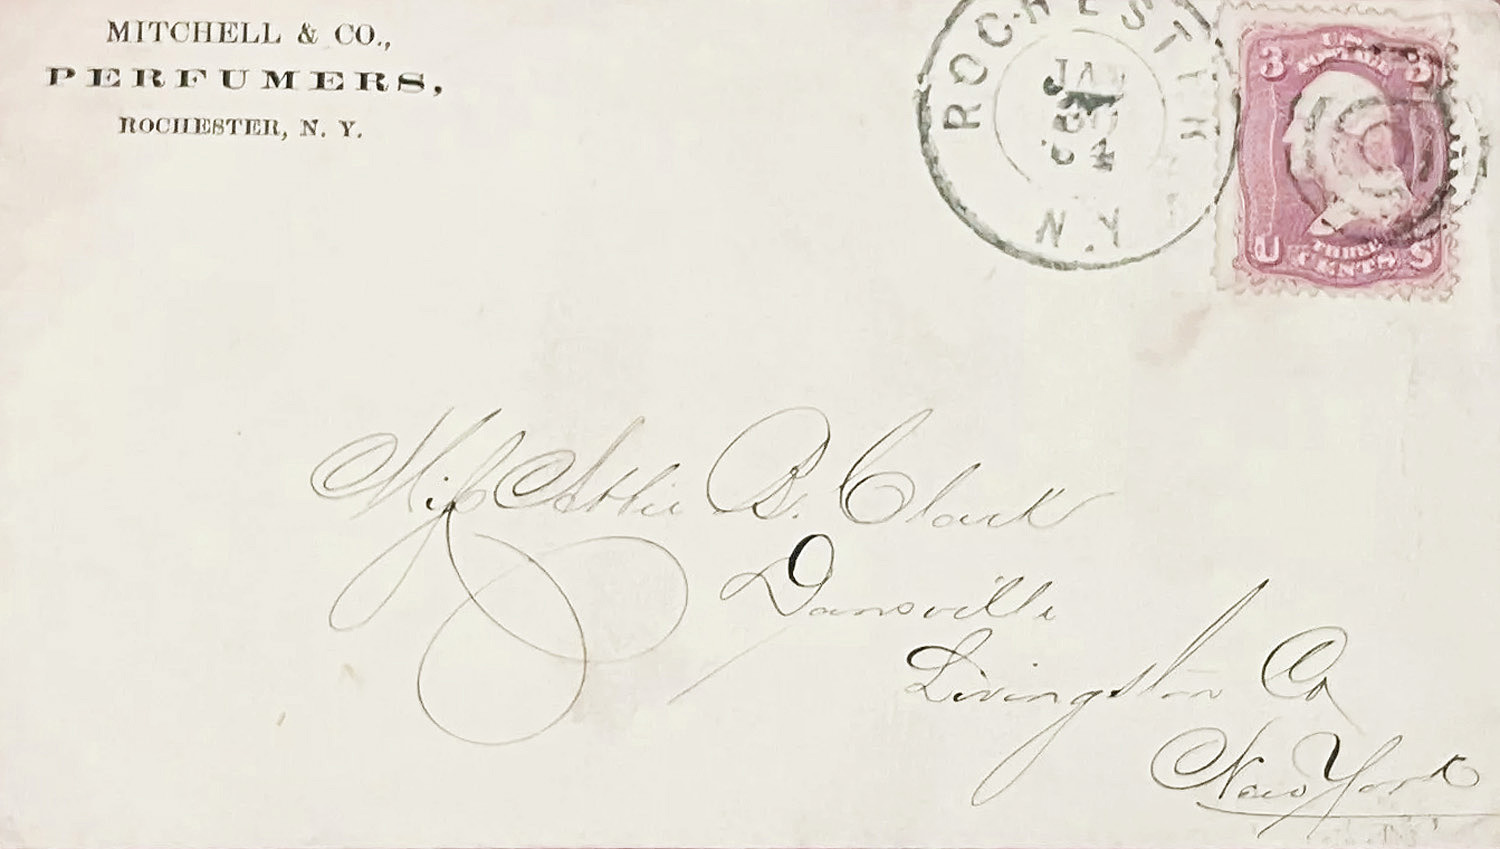 MITCHELL & CO.,
PERFUMERS,
ROCHESTER, N. Y.
ROCHESTER
JAN
N.Y
3 U.S. POSTAGE 3
U THREE CENTS S
Miss Attie B. Clark
Dansville
Livingston Co
New York